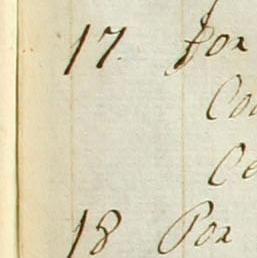 17. for
Co
Ce
18 Por